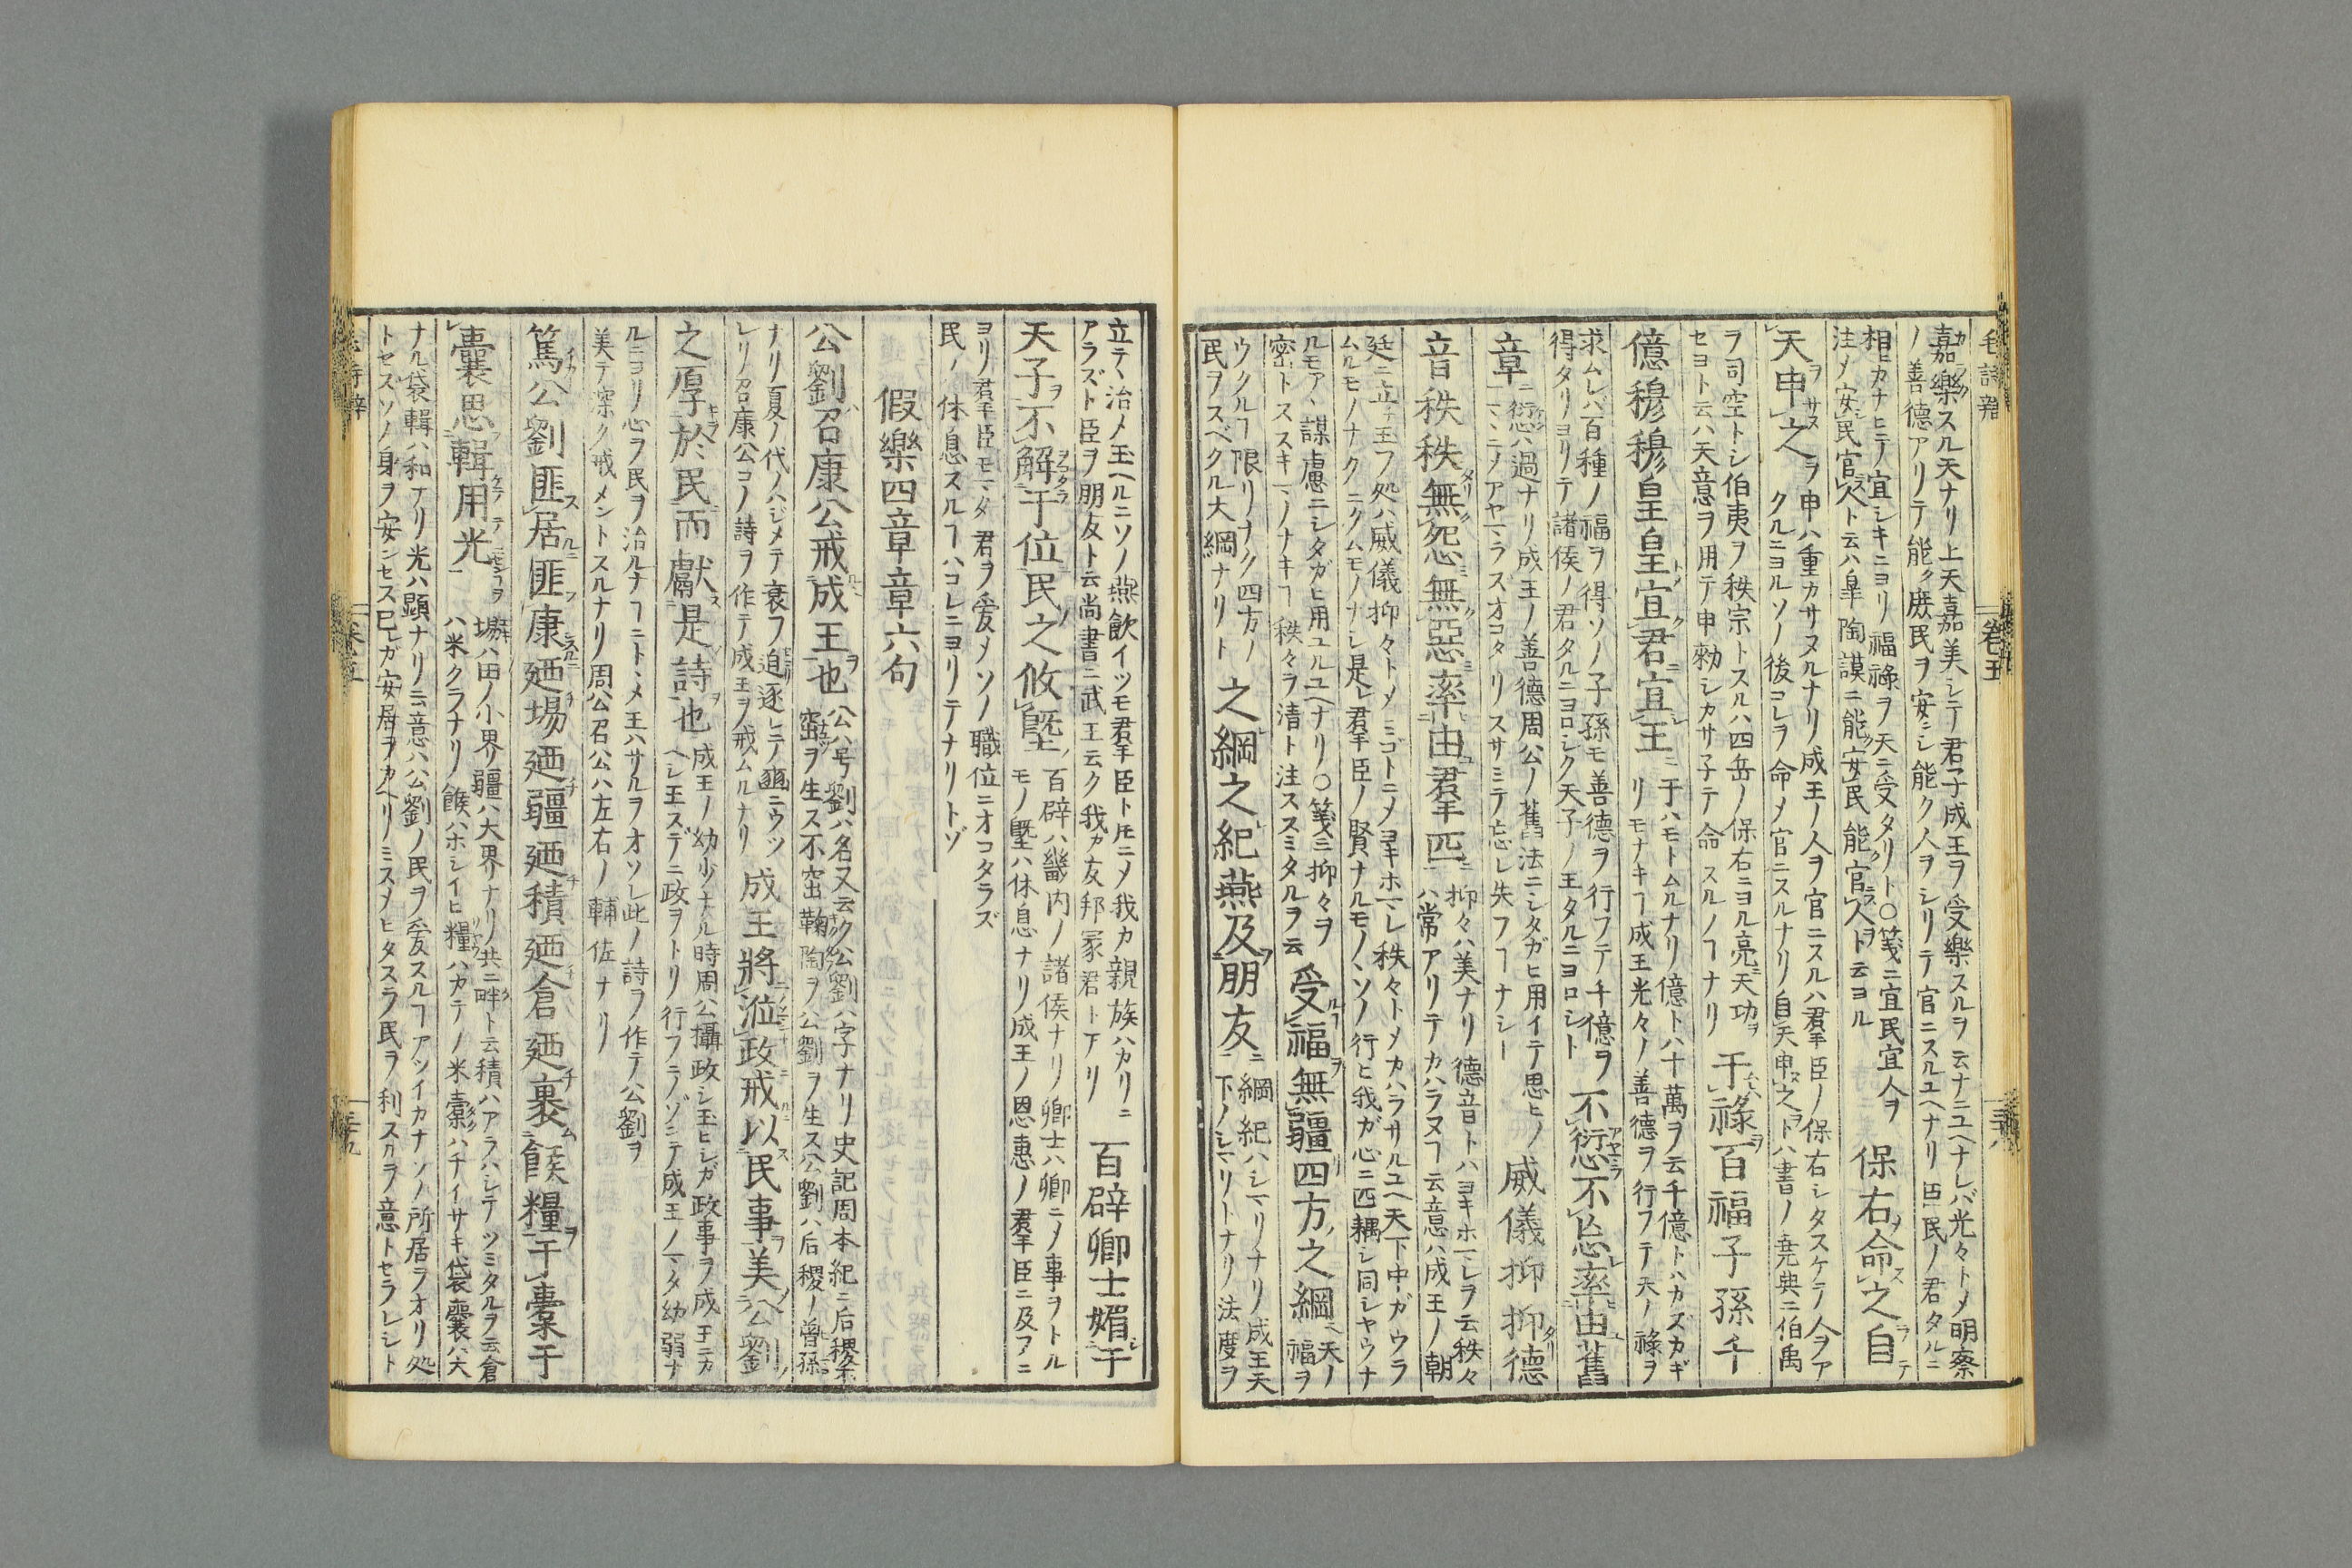 嘉樂スル天ナリ上天嘉美シテ君子成王ヲ受樂スルヲ云ナニユヘナレバ光々トメ明察
ノ善德アリテ能ク庶民ヲ安ンシ能ク人ヲシリテ官ニスルユヘナリ臣民ノ君タルニ
相ヒカナヒテ宜シキニヨリ福祿ヲ天ニ受タリト○箋ニ宜民宜人ヲ
注メ安民官人ト云ハ皐陶謨ニ能安民能官人ト云ヨル
保右命之自
天申之
ヲ申ハ重カサヌルナリ成王ノ人ヲ官ニスルハ羣臣ノ保右シタスケテノ人ヲア
クルニヨルソノ後コレヲ命メ官ニスルナリ自天申之トハ書ノ堯典ニ伯禹
ヲ司空トシ伯夷ヲ秩宗トスルハ四岳ノ保右ニヨル亮天功ヲ
セヨト云ハ天意ヲ用テ申勑シカサ子テ命スルノヿナリ
干祿百福子孫千
億穆穆皇皇宜君宜王
干ハモトムルナリ億トハ十萬ヲ云千億トハカズカギ
リモナキヿ成王光々ノ善德ヲ行フテ天ノ祿ヲ
求ムレバ百種ノ福ヲ得ソノ子孫モ善德ヲ行フテ千億ヲ
得タリヨリテ諸侯ノ君タルニヨロシク天子ノ王タルニヨロシト
不愆不忘率由舊
章
愆ハ過ナリ成王ノ善德周公ノ舊法ニシタガヒ用イテ思ヒノ
マヽニメアヤマラスオコタリスサミテ忘レ失フヿナシ
威儀抑抑德
音秩秩無怨無惡率由羣匹
抑々ハ美ナリ德音トハヨキホマレヲ云秩々
ハ常アリテカハラヌヿ云意ハ成王ノ朝
廷ニ立チ玉フ処ハ威儀抑々トメミゴトニメヨキホマレ秩々トメカハラサルユヘ天下中ガウラ
ムルモノナクニクムモノナシ是レ羣臣ノ賢ナルモノヽソノ行ヒ我ガ心ニ匹耦シ同シヤウナ
ルモアヽ謀慮ニシタガヒ用ユルユヘナリ○箋ニ抑々ヲ
密トススキマノナキヿ秩々ヲ清ト注ススミタルヲ云
受福無疆四方之綱
天ノ
福ヲ
ウクルヿ限リナク四方ノ
民ヲスベクル大綱ナリト
之綱之紀燕及朋友
綱紀ハシマリナリノ成王天
下ノシマリトナリ法度ヲ
立テヽ治メ玉ヘルニソノ燕飲イツモ君羣臣ト𪜈ニメ我カ親族ハカリニ
アラズト臣ヲ朋友ト云尚書ニ武王云ク我ガ友邦冢君トアリ
百辟卿士媚于
天子不解于位民之攸墍
百辟ハ畿内ノ諸侯ナリ卿士ハ卿ニメ事ヲトル
モノ墍ハ休息ナリ成王ノ恩惠ノ羣臣ニ及アニ
ヨリ君羣臣モマタ君ヲ愛メソノ職位ニオコタラズ
民ノ休息スルヿハコレニヨリテナリトゾ
假樂四章章六句
公劉召康公戒成王也
公ハ号劉ハ名又云ク公劉ハ字ナリ史記周本紀ニ后稷
窋ヲ生ス不窋鞠陶ヲ公劉ヲ生ス公劉ハ后稷ノ曾孫
ナリ夏ノ代ノハジメテ衰フ追逐レテ豳ニウツ
レリノ召康公コノ詩ヲ作テ成王ヲ戒ムルナリ
成王將涖政戒以民事美公劉
之厚於民而獻是詩也
成王ノ幼少ナル時周公攝政シ玉ヒシガ政事ヲ成王ニカ
ヘシ王スデニ政ヲトリ行フニノゾミテ成王ノマタ幼弱ナ
ルニヨリ心ヲ民ヲ治ルナヿニトヽメ玉ハサルヲオソレ此ノ詩ヲ作テ公劉ヲ
美テ深ク戒メントスルナリ周公召公ハ左右ノ輔佐ナリ
篤公劉匪居匪康廼場廼疆廼積廼倉廼裹餱糧于橐于
囊思輯用光
場ハ田ノ小界疆ハ大界ナリノ共ニ畔ト云積ハアラハシテツミタルヲ云倉
ハ米クラナリノ餱ハホシイヒ糧ハカテノ米橐ハチイサキ袋囊ハ大
ナル袋輯ハ和アリ光ハ顯ナリニ云意ハ公劉ノ民ヲ愛スルヿアツイカナソノ所居ヲオリ処
トセズソノ身ヲ安ンセス已レガ安居ヲカヘリノミスメヒタスラ民ヲ利スルヲ意トセラレシト
毛詩辨
卷五
三十八
三十九